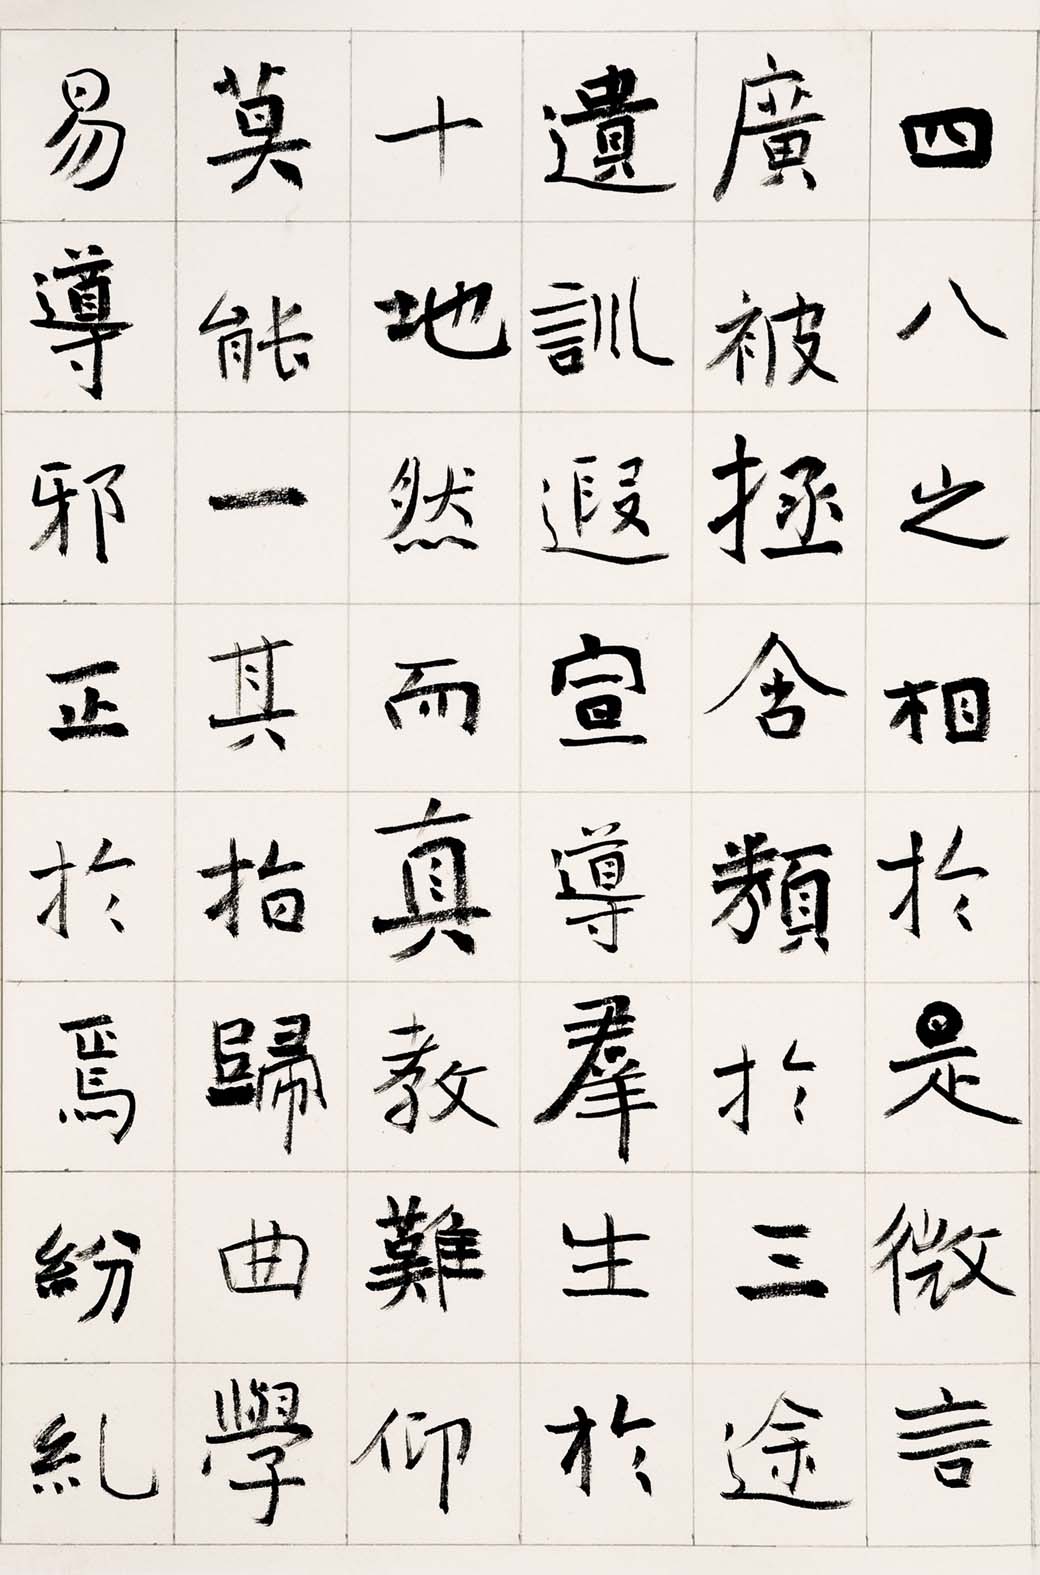 四八之相於是微言
廣被拯含類於三途
遺訓遐宣導羣生於
十地然而真教難仰
莫能一其指歸曲學
易導邪正於焉紛糺